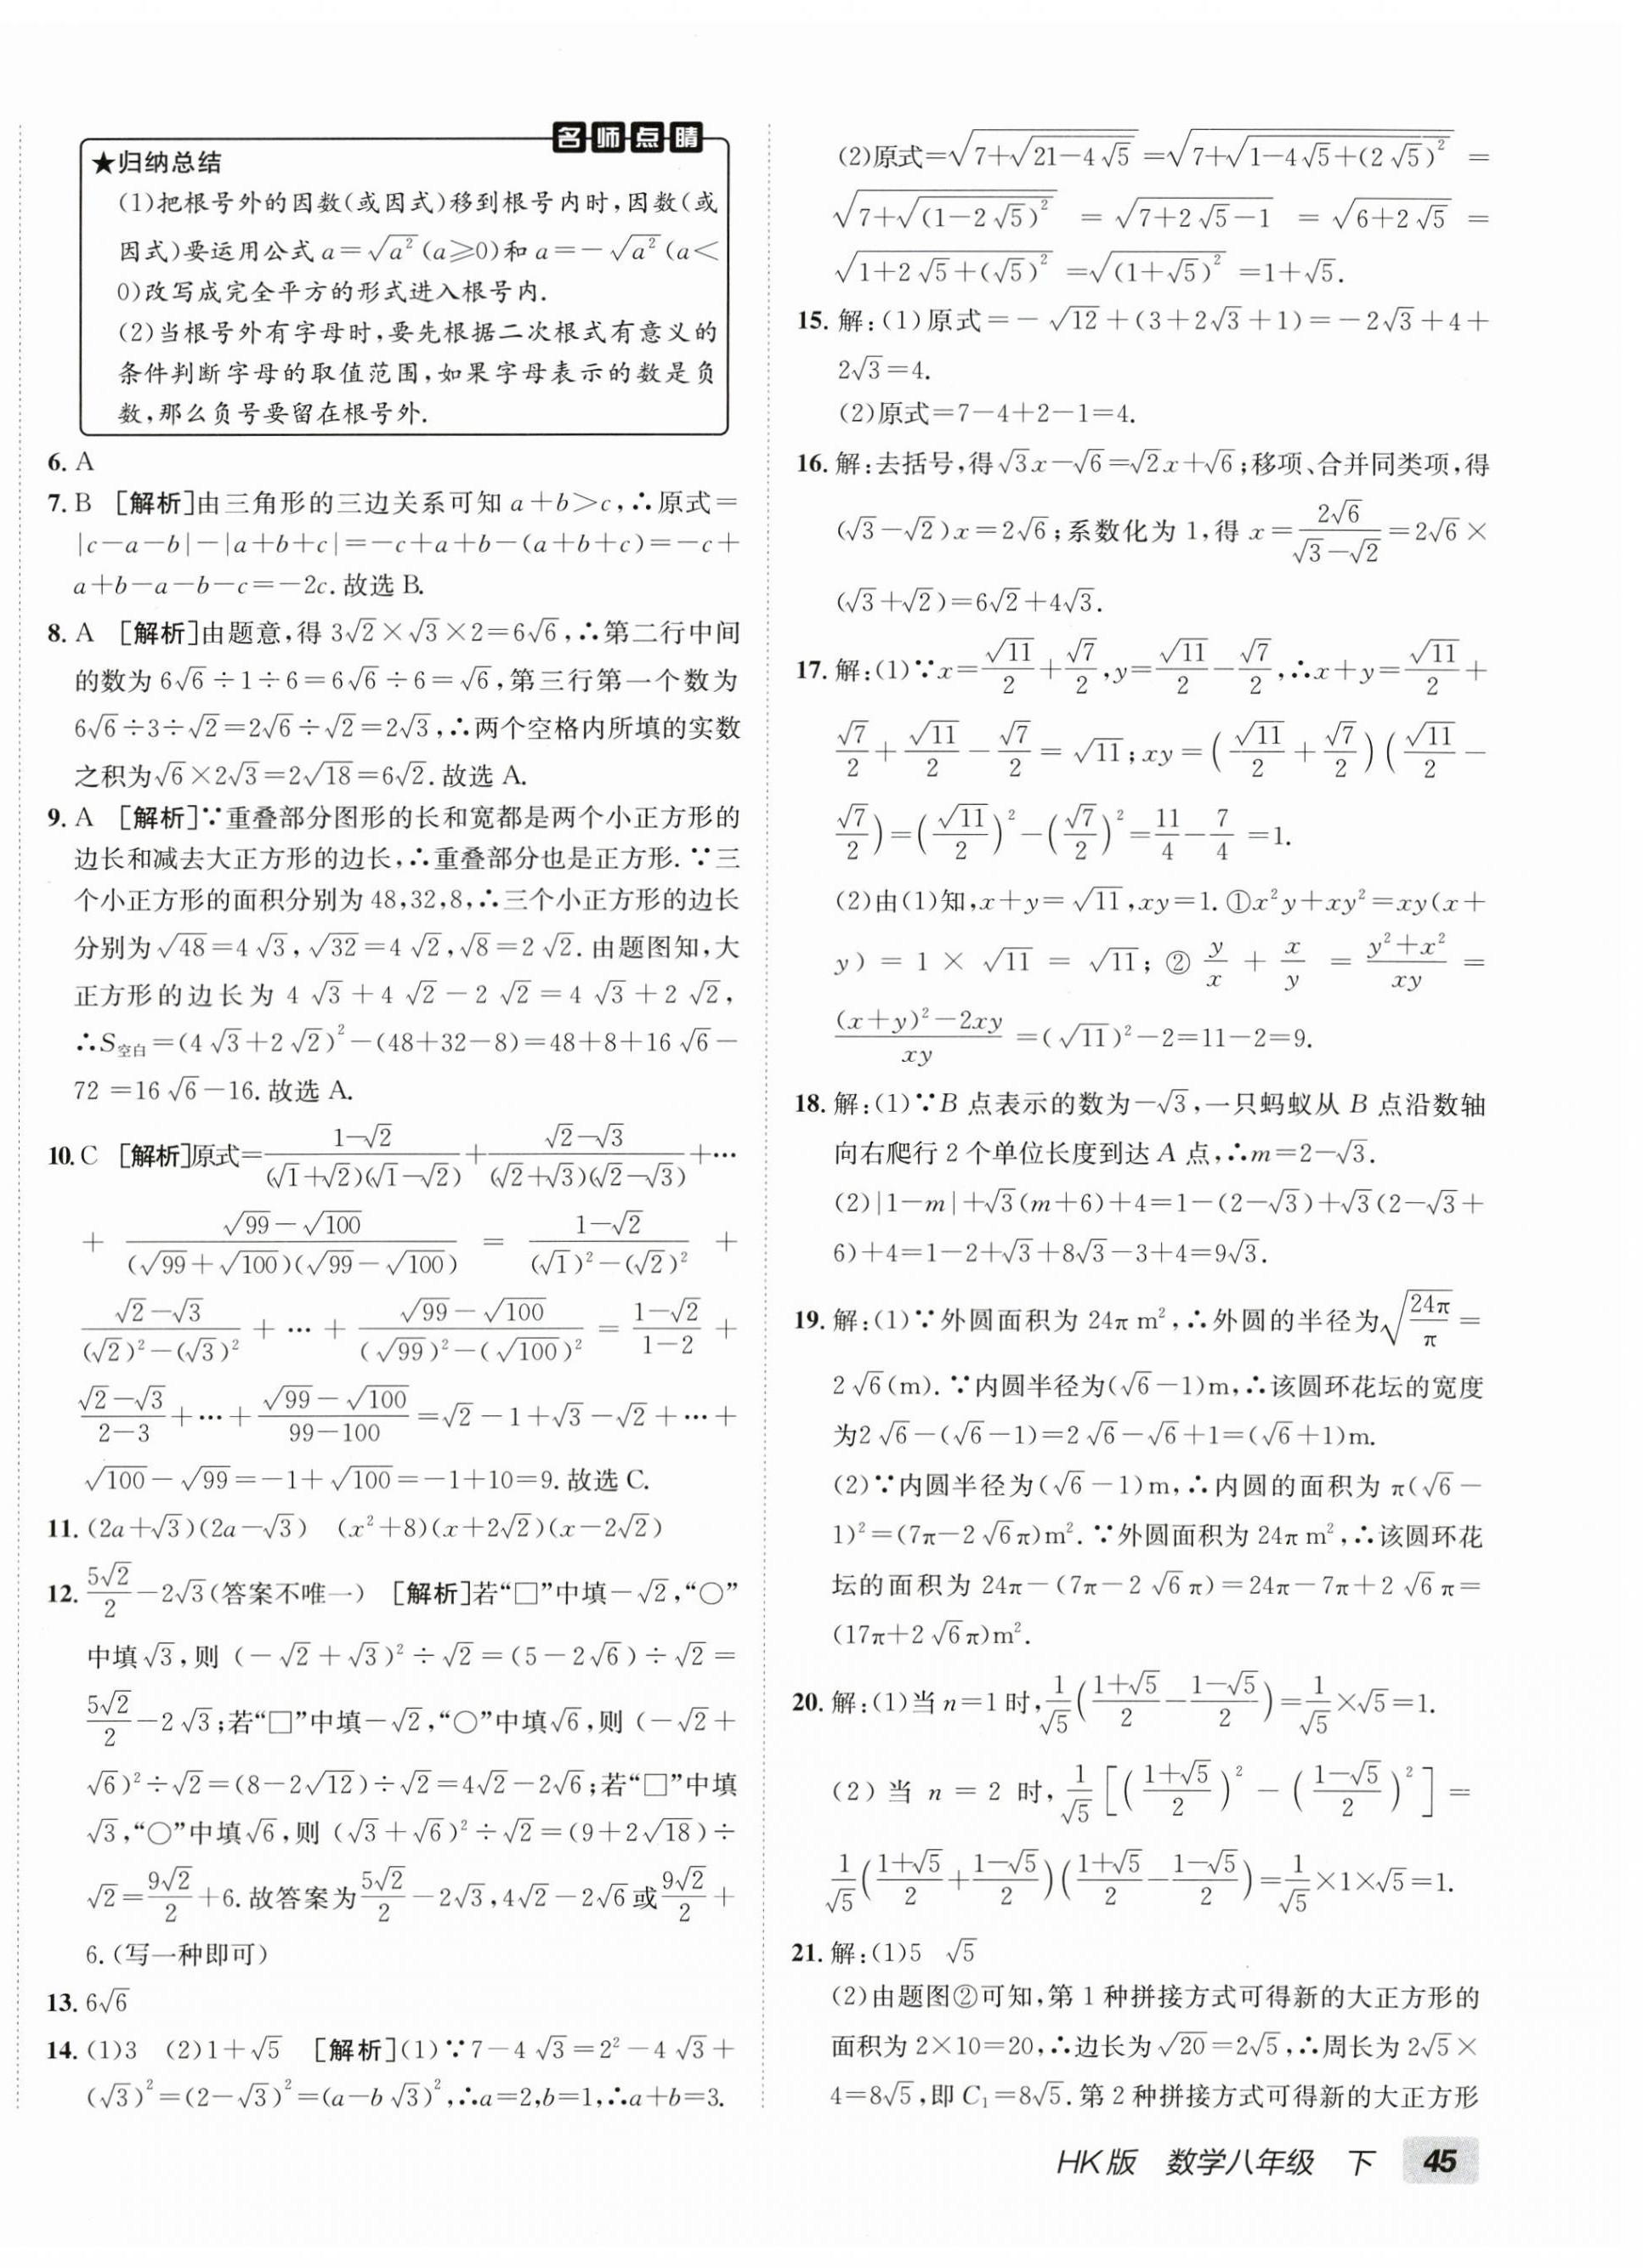 名师点睛
★归纳总结
(1)把根号外的因数(或因式)移到根号内时,因数(或
因式)要运用公式 a=√(a²)(a≥0)和 a=-√(a²)(a<
0)改写成完全平方的形式进入根号内.
(2)当根号外有字母时,要先根据二次根式有意义的
条件判断字母的取值范围,如果字母表示的数是负
数,那么负号要留在根号外.
6. A
7. B [解析]由三角形的三边关系可知 a+b>c,∴原式=
|c-a-b|-|a+b+c|=-c+a+b-(a+b+c)=-c+
a+b-a-b-c=-2c.故选 B.
8. A [解析]由题意,得 3√2×√3×2=6√6,∴第二行中间
的数为 6√6÷1÷6=6√6÷6=√6,第三行第一个数为
6√6÷3÷√2=2√6÷√2=2√3,∴两个空格内所填的实数
之积为√6×2√3=2√18=6√2.故选 A.
9. A [解析]∵重叠部分图形的长和宽都是两个小正方形的
边长和减去大正方形的边长,∴重叠部分也是正方形.∵三
个小正方形的面积分别为 48,32,8,∴三个小正方形的边长
分别为√48=4√3,√32=4√2,√8=2√2.由题图知,大
正方形的边长为 4√3+4√2-2√2=4√3+2√2,
∴S空白=(4√3+2√2)²-(48+32-8)=48+8+16√6-
72=16√6-16.故选 A.
10. C [解析]原式=(1-√2)/((√1+√2)(√1-√2))+(√2-√3)/((√2+√3)(√2-√3))+…
+(√99-√100)/((√99+√100)(√99-√100))=(1-√2)/((√1)²-(√2)²)+
(√2-√3)/((√2)²-(√3)²)+…+(√99-√100)/((√99)²-(√100)²)=(1-√2)/(1-2)+
(√2-√3)/(2-3)+…+(√99-√100)/(99-100)=√2-1+√3-√2+…+
√100-√99=-1+√100=-1+10=9.故选 C.
11. (2a+√3)(2a-√3) (x²+8)(x+2√2)(x-2√2)
12. 5√2/2-2√3(答案不唯一) [解析]若“□”中填-√2,“○”
中填√3,则 (-√2+√3)²÷√2=(5-2√6)÷√2=
5√2/2-2√3;若“□”中填-√2,“○”中填√6,则 (-√2+
√6)²÷√2=(8-2√12)÷√2=4√2-2√6;若“□”中填
√3,“○”中填√6,则 (√3+√6)²÷√2=(9+2√18)÷
√2=9√2/2+6.故答案为5√2/2-2√3,4√2-2√6或9√2/2+
6.(写一种即可)
13. 6√6
14. (1)3 (2)1+√5 [解析](1)∵7-4√3=2²-4√3+
(√3)²=(2-√3)²=(a-b√3)²,∴a=2,b=1,∴a+b=3.
(2)原式=√(7+√(21-4√5))=√(7+√(1-4√5+(2√5)²))=
√(7+√((1-2√5)²))=√(7+2√5-1)=√(6+2√5)=
√(1+2√5+(√5)²)=√((1+√5)²)=1+√5.
15. 解:(1)原式=-√12+(3+2√3+1)=-2√3+4+
2√3=4.
(2)原式=7-4+2-1=4.
16. 解:去括号,得√3x-√6=√2x+√6;移项、合并同类项,得
(√3-√2)x=2√6;系数化为 1,得 x=2√6/(√3-√2)=2√6×
(√3+√2)=6√2+4√3.
17. 解:(1)∵x=√11/2+√7/2,y=√11/2-√7/2,∴x+y=√11/2+
√7/2+√11/2-√7/2=√11;xy=(√11/2+√7/2)(√11/2-
√7/2)=(√11/2)²-(√7/2)²=11/4-7/4=1.
(2)由(1)知,x+y=√11,xy=1.①x²y+xy²=xy(x+
y)=1×√11=√11;②y/x+x/y=(y²+x²)/xy=
((x+y)²-2xy)/xy=(√11)²-2=11-2=9.
18. 解:(1)∵B 点表示的数为-√3,一只蚂蚁从 B 点沿数轴
向右爬行 2 个单位长度到达 A 点,∴m=2-√3.
(2)|1-m|+√3(m+6)+4=1-(2-√3)+√3(2-√3+
6)+4=1-2+√3+8√3-3+4=9√3.
19. 解:(1)∵外圆面积为 24π m²,∴外圆的半径为√(24π/π)=
2√6(m).∵内圆半径为(√6-1)m,∴该圆环花坛的宽度
为2√6-(√6-1)=2√6-√6+1=(√6+1)m.
(2)∵内圆半径为(√6-1)m,∴内圆的面积为 π(√6-
1)²=(7π-2√6π)m².∵外圆面积为 24π m²,∴该圆环花
坛的面积为 24π-(7π-2√6π)=24π-7π+2√6π=
(17π+2√6π)m².
20. 解:(1)当 n=1 时,1/√5((1+√5)/2-(1-√5)/2)=1/√5×√5=1.
(2)当 n=2 时,1/√5[((1+√5)/2)²-((1-√5)/2)²]=
1/√5((1+√5)/2+(1-√5)/2)((1+√5)/2-(1-√5)/2)=1/√5×1×√5=1.
21. 解:(1)5 √5
(2)由题图②可知,第 1 种拼接方式可得新的大正方形的
面积为 2×10=20,∴边长为√20=2√5,∴周长为 2√5×
4=8√5,即 C₁=8√5.第 2 种拼接方式可得新的大正方形
HK版 数学八年级 下 45